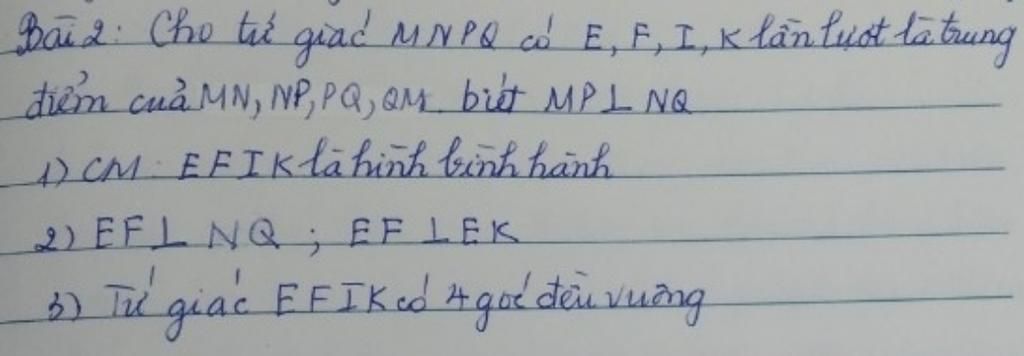 Bài 2: Cho tứ giác MNPQ có E, F, I, K lần lượt là trung
điểm của MN, NP, PQ, QM biết MP ⊥ NQ
1) CM: EFIK là hình bình hành
2) EF ⊥ NQ ; EF ⊥ EK
3) Tứ giác EFIK có 4 góc đều vuông